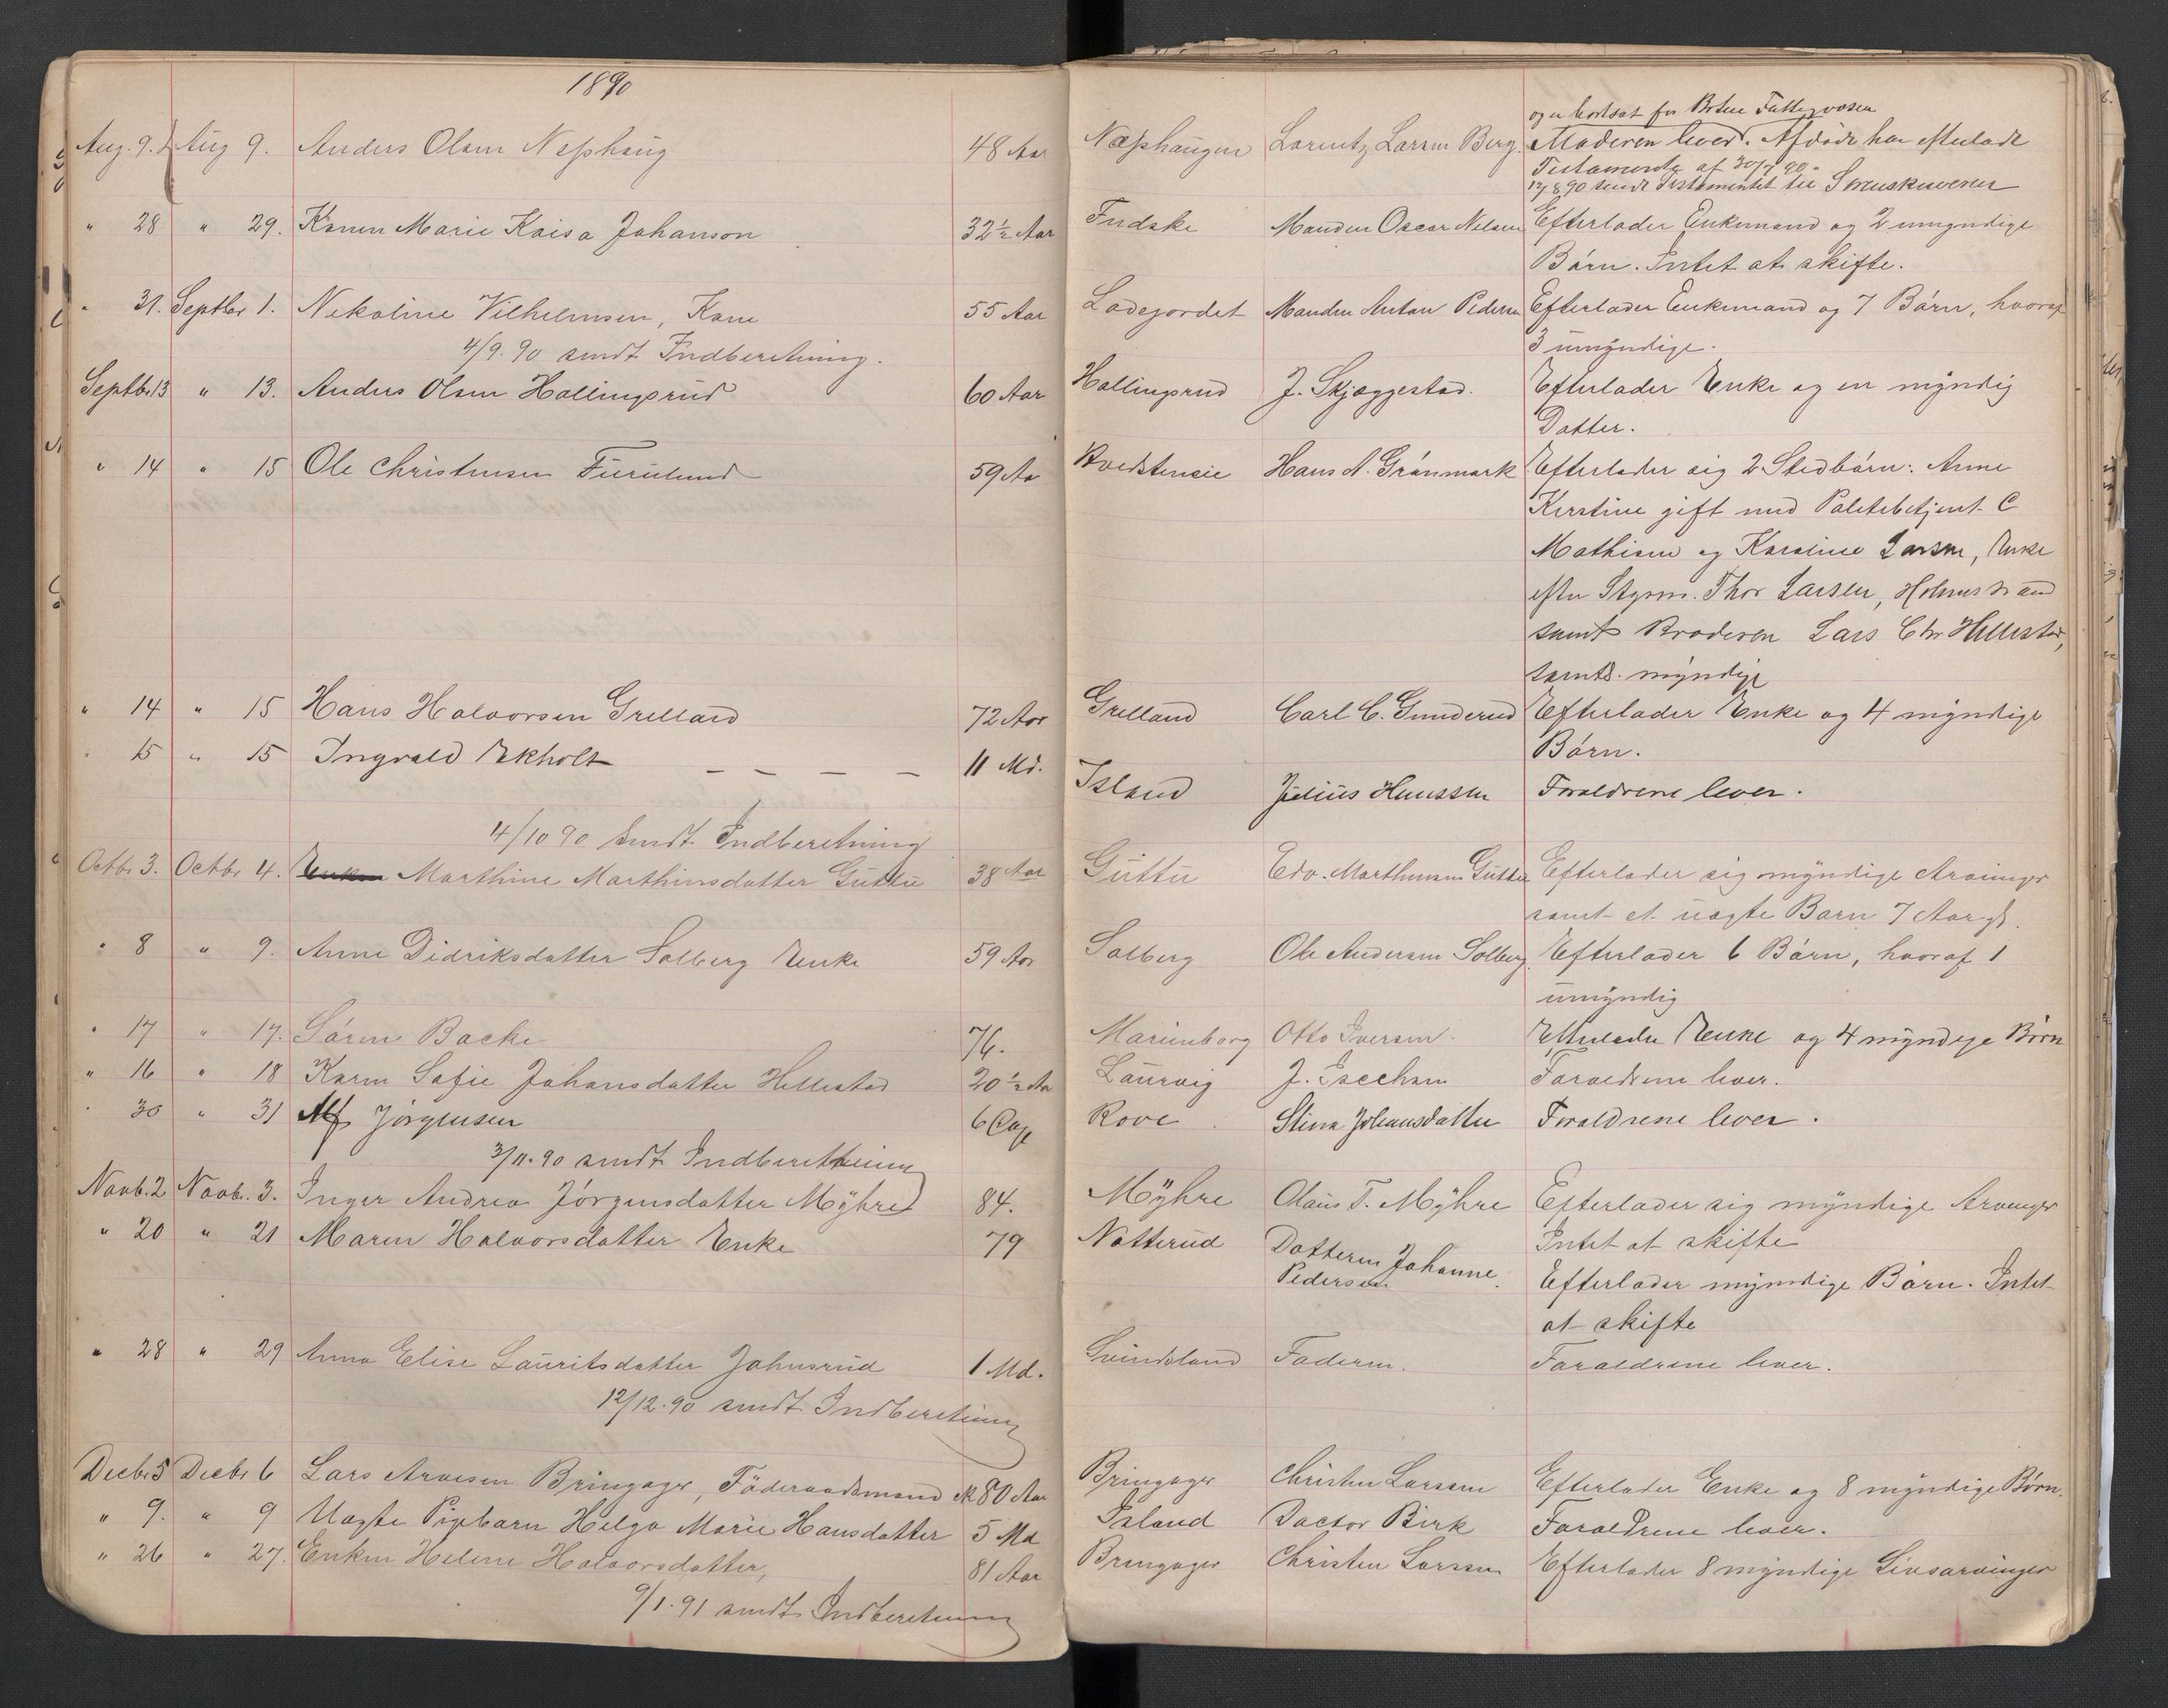 1890
Aug. 9. Aug 9. Anders Olsen Næshaug 48 Aar Næshaugen Lorentz Larsen Berg.
og er bortsat for Botne Fattigvæsen
Moderen lever. Afdøde har efterladt
Testamente af 30/7 90.
12/8 90 sendt Testamentet til Sorenskriveren
" 28 " 29. Konen Marie Kaisa Johanson 32½ Aar Manden Oscar Nelsen Efterlader Enkemand og 2 umyndige
Børn. Intet at skifte.
" 31. Septbr 1. Nekoline Vilhelmsen, Kone 55 Aar Ladegordet Manden Anton Pedersen Efterlader Enkemand og 7 Børn, hvoraf
4/9.90 sendt Indberetning. 3 umyndige.
Septbr 13 " 13. Anders Olsen Hallingsrud 60 Aar Hallingsrud J. Skjæggestad. Efterlader Enke og en myndig
Datter.
" 14 " 15 Ole Christensen Furulund 59 Aa Hans A. Grønmark Efterlader sig 2 Stedbørn: Anne
Kirstine gift med Politibetjent C
Mathisen og Karoline Larsen, Enke
efter Styrm. Thor Larsen, Holmestrand
samt Broderen Lars Chr Hillestad,
samtl. myndige
" 14 " 15 Hans Halvorsen Grelland 72 Aar Grelland Carl C. Gunderud Efterlader Enke og 4 myndige
Børn.
" 15 " 15 Ingvald Ekholt — — — — 11 Md. Island Julius Hanssen Forældrene lever.
4/10 90 sendt Indberetning
Octbr 3. Octbr 4. Marthine Marthinsdatter Guttu 38 Aar Guttu Edv. Marthinsen Guttu Efterlader sig myndige Arvinger
samt et uægte Barn 7 Aar gl.
" 8 " 9. Anne Didriksdatter Solberg Enke 59 Aar Solberg Ole Andersen Solberg. Efterlader 6 Børn, hvoraf 1
umyndig
" 17 " 17. Søren Backe 76. Marienborg Otto Iversen. Efterlader Enke og 4 myndige Børn
" 16 " 18 Karen Sofie Johansdatter Hillestad 20½ Aa Laurvig J. Forældrene lever.
" 30 " 31 Alf Jørgensen 6 Dage Rove Stina Johansdatter Forældrene lever.
3/11.90 sendt Indberetning
Novb. 2 Novbr. 3. Inger Andrea Jørgensdatter Mÿhre 84. Mÿhre Olaus T. Mÿhre Efterlader sig myndige Arvinger
Intet at skifte
" 20 " 21 Maren Halvorsdatter Enke 79 Natterud Datteren Johanne
Pedersen. Efterlader myndige Børn. Intet
at skifte
" 28 " 29 Anna Elise Lauritsdatter Johnsrud 1 Md. Svindsland Faderen. Forældrene lever.
12/12.90 sendt Indberetning
Decbr 5 Decbr 6 Lars Arvesen Bringager, Föderaadsmand 80 Aar Bringager Christen Larsen Efterlader Enke og 8 myndige Børn.
" 9. " 9 Uægte Pigebarn Helga Marie Hansdatter 5 Md Island Doctor Birk Forældrene lever.
" 26 " 27. Enken Helene Halvorsdatter, 81 Aar Bringager Christen Larsen Efterlader 8 myndige Livsarvinger
9/1.91 sendt Indberetning